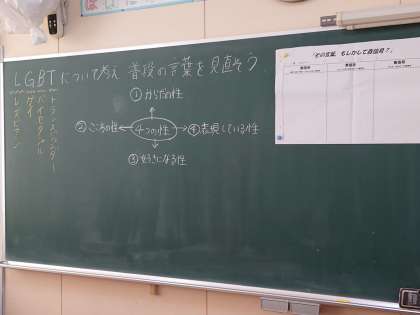 LGBTについて考え 普段の言葉を見直そう
レズビアン
ゲイ
バイセクシャル
トランスジェンダー
①からだの性
②こころの性
4つの性
④表現している性
③好きになる性
「その言葉、もしかして赤信号？」
青信号
黄信号
赤信号